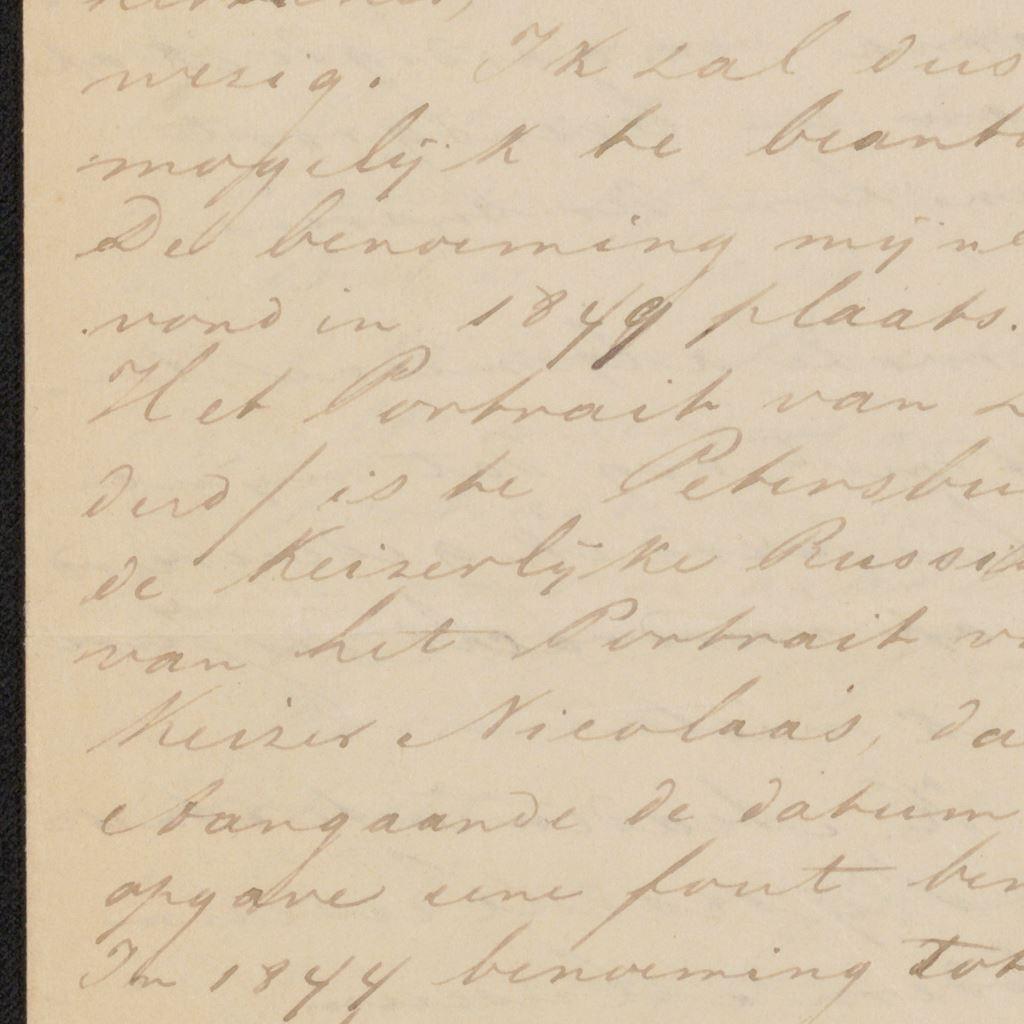 wezig. Ik zal dus
mogelijk te beantw
De benoeming mijne
vond in 1849 plaats.
Het Portrait van Z
derd / is te Petersbu
de Keizerlijke Russi
van het Portrait v
Keizer Nicolaas, da
Aangaande de datum
opgave eene fout ben
In 1844 benoeming tot